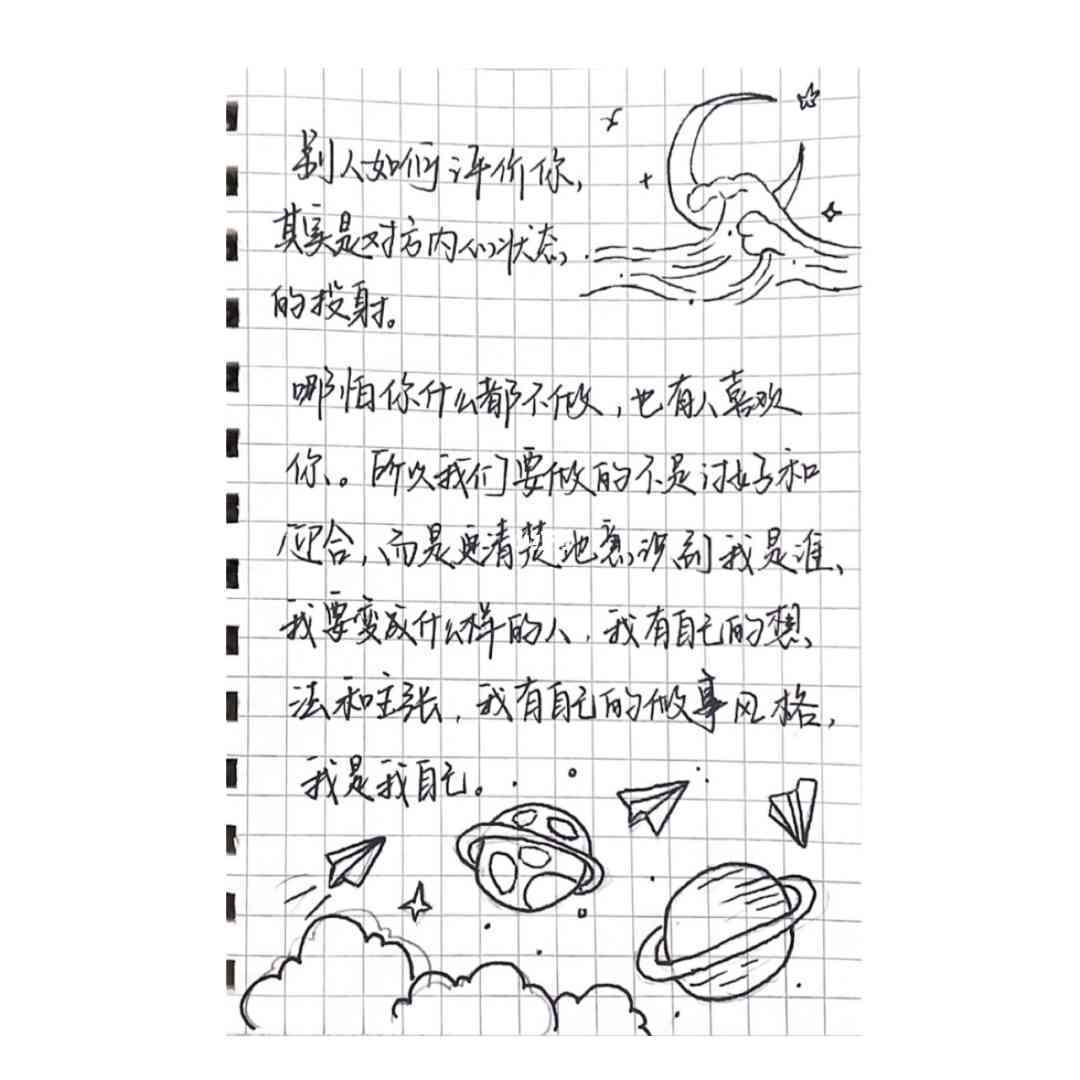 别人如何评价你，
其实是对方内心状态
的投射。
哪怕你什么都不做，也有人喜欢
你。所以我们要做的不是讨好和
迎合，而是更清楚地意识到我是谁、
我要变成什么样的人，我有自己的想
法和主张，我有自己的做事风格，
我是我自己。